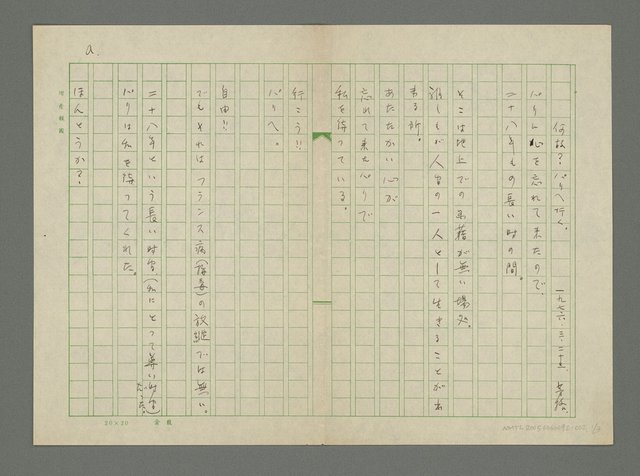 a.
何故？パリへ行く。
一九七六・三・二十五
パリに心を忘れて来たので、
二十八年もの長い時の間。
そこは地上での国籍が無い場処。
誰しもが人間の一人として生きることが出
来る所。
あたたかい心が
忘れて来た心りで
私を待っている。
行こう!!
パリへ。
自由!!
でもそれはフランス病(梅毒)の放縦では無い。
二十八年という長い時間(私にとって尊い時間)
だった。
パリは私を待ってくれた。
ほんとうか？
增產報國
20×20
NMTL2005
1/2